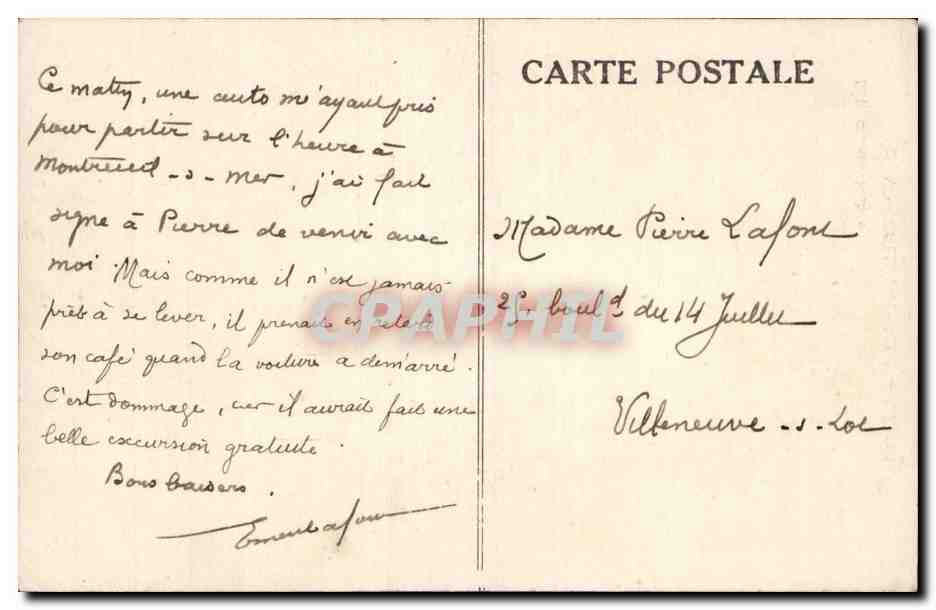 CARTE POSTALE
Ce matin, une auto m'ayant pris
pour partir sur l'heure à
Montreuil-s-Mer, j'ai fait
signe à Pierre de venir avec
moi. Mais comme il n'est jamais
prêt à se lever, il prenait en retard
son café quand la voiture a démarré.
C'est dommage, car il aurait fait une
belle excursion gratuite.
Bons baisers.
Madame Pierre Lafont
25, boul.d du 14 Juillet
Villeneuve-s-Lot
CPAPHIL